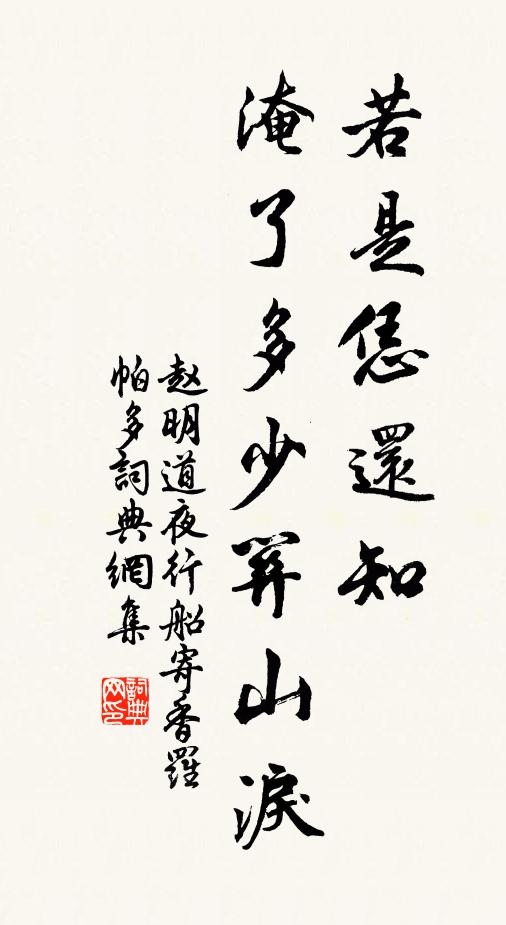 若是恁還知
淹了多少關山淚
赵明道夜行船寄香羅
帕多詞典網集
詞典
网印